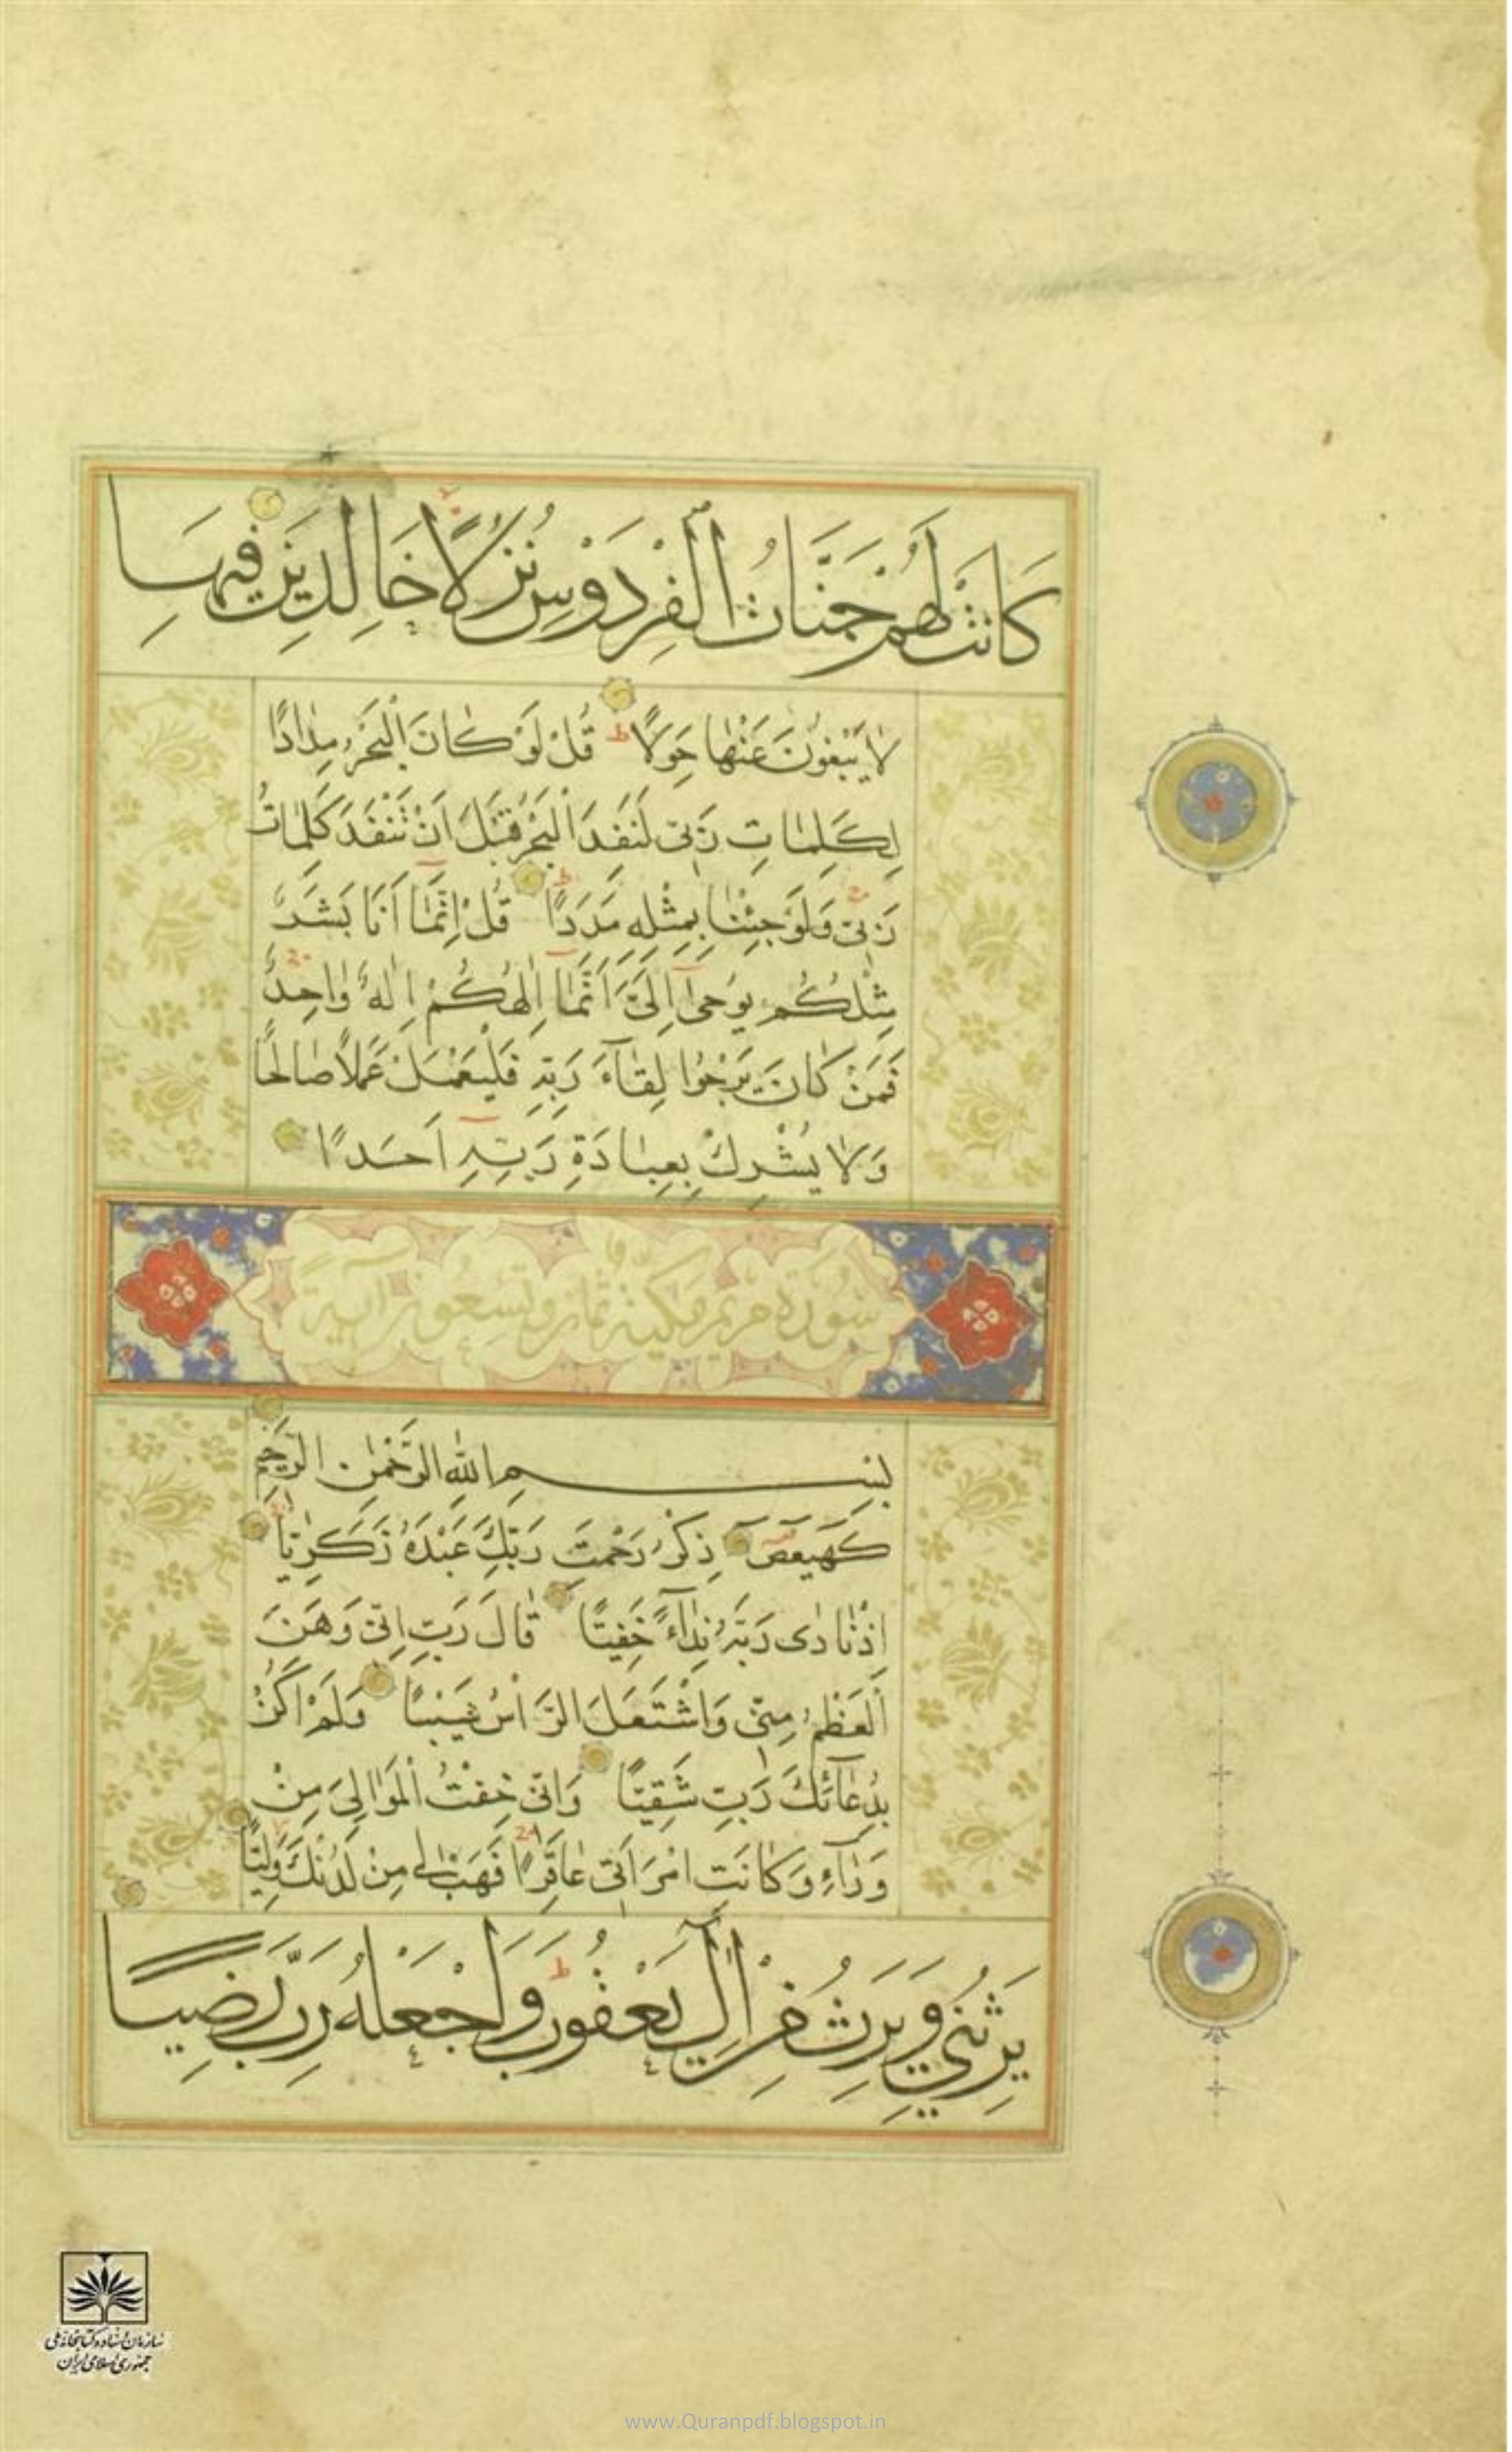 كَانَتْ لَهُمْ جَنَّاتُ الْفِرْدَوْسِ نُزُلًا خَالِدِينَ فِيهَا
لَا يَبْغُونَ عَنْهَا حِوَلًا ط قُلْ لَوْ كَانَ الْبَحْرُ مِدَادًا
لِكَلِمَاتِ رَبِّي لَنَفِدَ الْبَحْرُ قَبْلَ أَنْ تَنْفَدَ كَلِمَاتُ
رَبِّي وَلَوْ جِئْنَا بِمِثْلِهِ مَدَدًا ط قُلْ إِنَّمَا أَنَا بَشَرٌ
مِثْلُكُمْ يُوحَىٰ إِلَيَّ أَنَّمَا إِلَٰهُكُمْ إِلَٰهٌ وَاحِدٌ
فَمَنْ كَانَ يَرْجُوا لِقَاءَ رَبِّهِ فَلْيَعْمَلْ عَمَلًا صَالِحًا
وَلَا يُشْرِكْ بِعِبَادَةِ رَبِّهِ أَحَدًا
سُورَةُ مَرْيَمَ مَكِّيَّةٌ ثَمَان وَتِسْعُونَ آيَةً
بِسْمِ اللهِ الرَّحْمٰنِ الرَّحِيمِ
كٓهيعٓصٓ ذِكْرُ رَحْمَتِ رَبِّكَ عَبْدَهُ زَكَرِيَّا
إِذْ نَادَىٰ رَبَّهُ نِدَاءً خَفِيًّا قَالَ رَبِّ إِنِّي وَهَنَ
الْعَظْمُ مِنِّي وَاشْتَعَلَ الرَّأْسُ شَيْبًا وَلَمْ أَكُنْ
بِدُعَائِكَ رَبِّ شَقِيًّا وَإِنِّي خِفْتُ الْمَوَالِيَ مِنْ
وَرَاءِي وَكَانَتِ امْرَأَتِي عَاقِرًا فَهَبْ لِي مِنْ لَدُنْكَ وَلِيًّا
يَرِثُنِي وَيَرِثُ مِنْ آلِ يَعْقُوبَ ط وَاجْعَلْهُ رَبِّ رَضِيًّا
سازمان اسناد و کتابخانه ملی
جمهوری اسلامی ایران
www.Quranpdf.blogspot.in